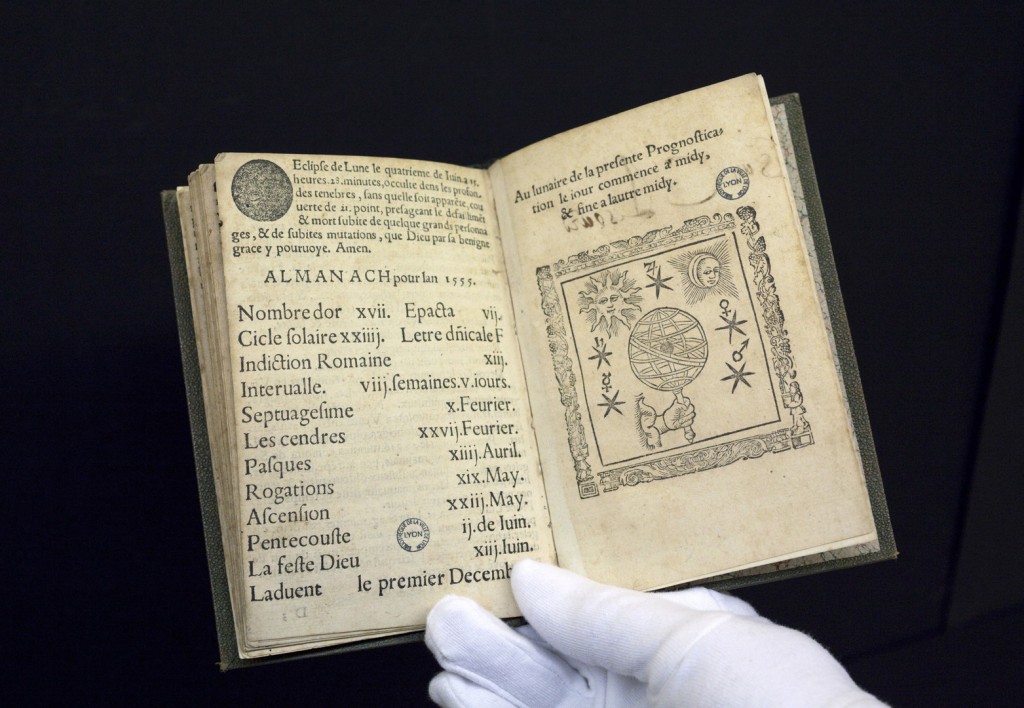 Eclipſe de Lune le quatrieme de Iuin a 15.
heures. 28. minutes, occulte dens les profon-
des tenebres, ſans quelle ſoit apparẽte, cou
uerte de 21. point, preſageant le defaillimẽt
& mort ſubite de quelque grands perſonna
ges, & de ſubites mutations, que Dieu par ſa benigne
grace y pouruoye. Amen.
ALMANACH pour lan 1555.
Nombre dor xvii. Epacta vij.
Cicle ſolaire xxiiij. Letre dñicale F
Indiction Romaine xiij.
Interualle. viij.ſemaines.v.iours.
Septuageſime x.Feurier.
Les cendres xxvij.Feurier.
Paſques xiiij.Auril.
Rogations xix.May.
Aſcenſion xxiij.May.
Pentecouſte ij.de Iuin.
La feſte Dieu xiij.Iuin.
Laduent le premier Decemb
BIBLIOTHEQUE DE LA VILLE DE LYON
Au lunaire de la preſente Prognoſtica-
tion le iour commence à midy,
& fine a lautre midy.
BIBLIOTHEQUE DE LA VILLE DE LYON